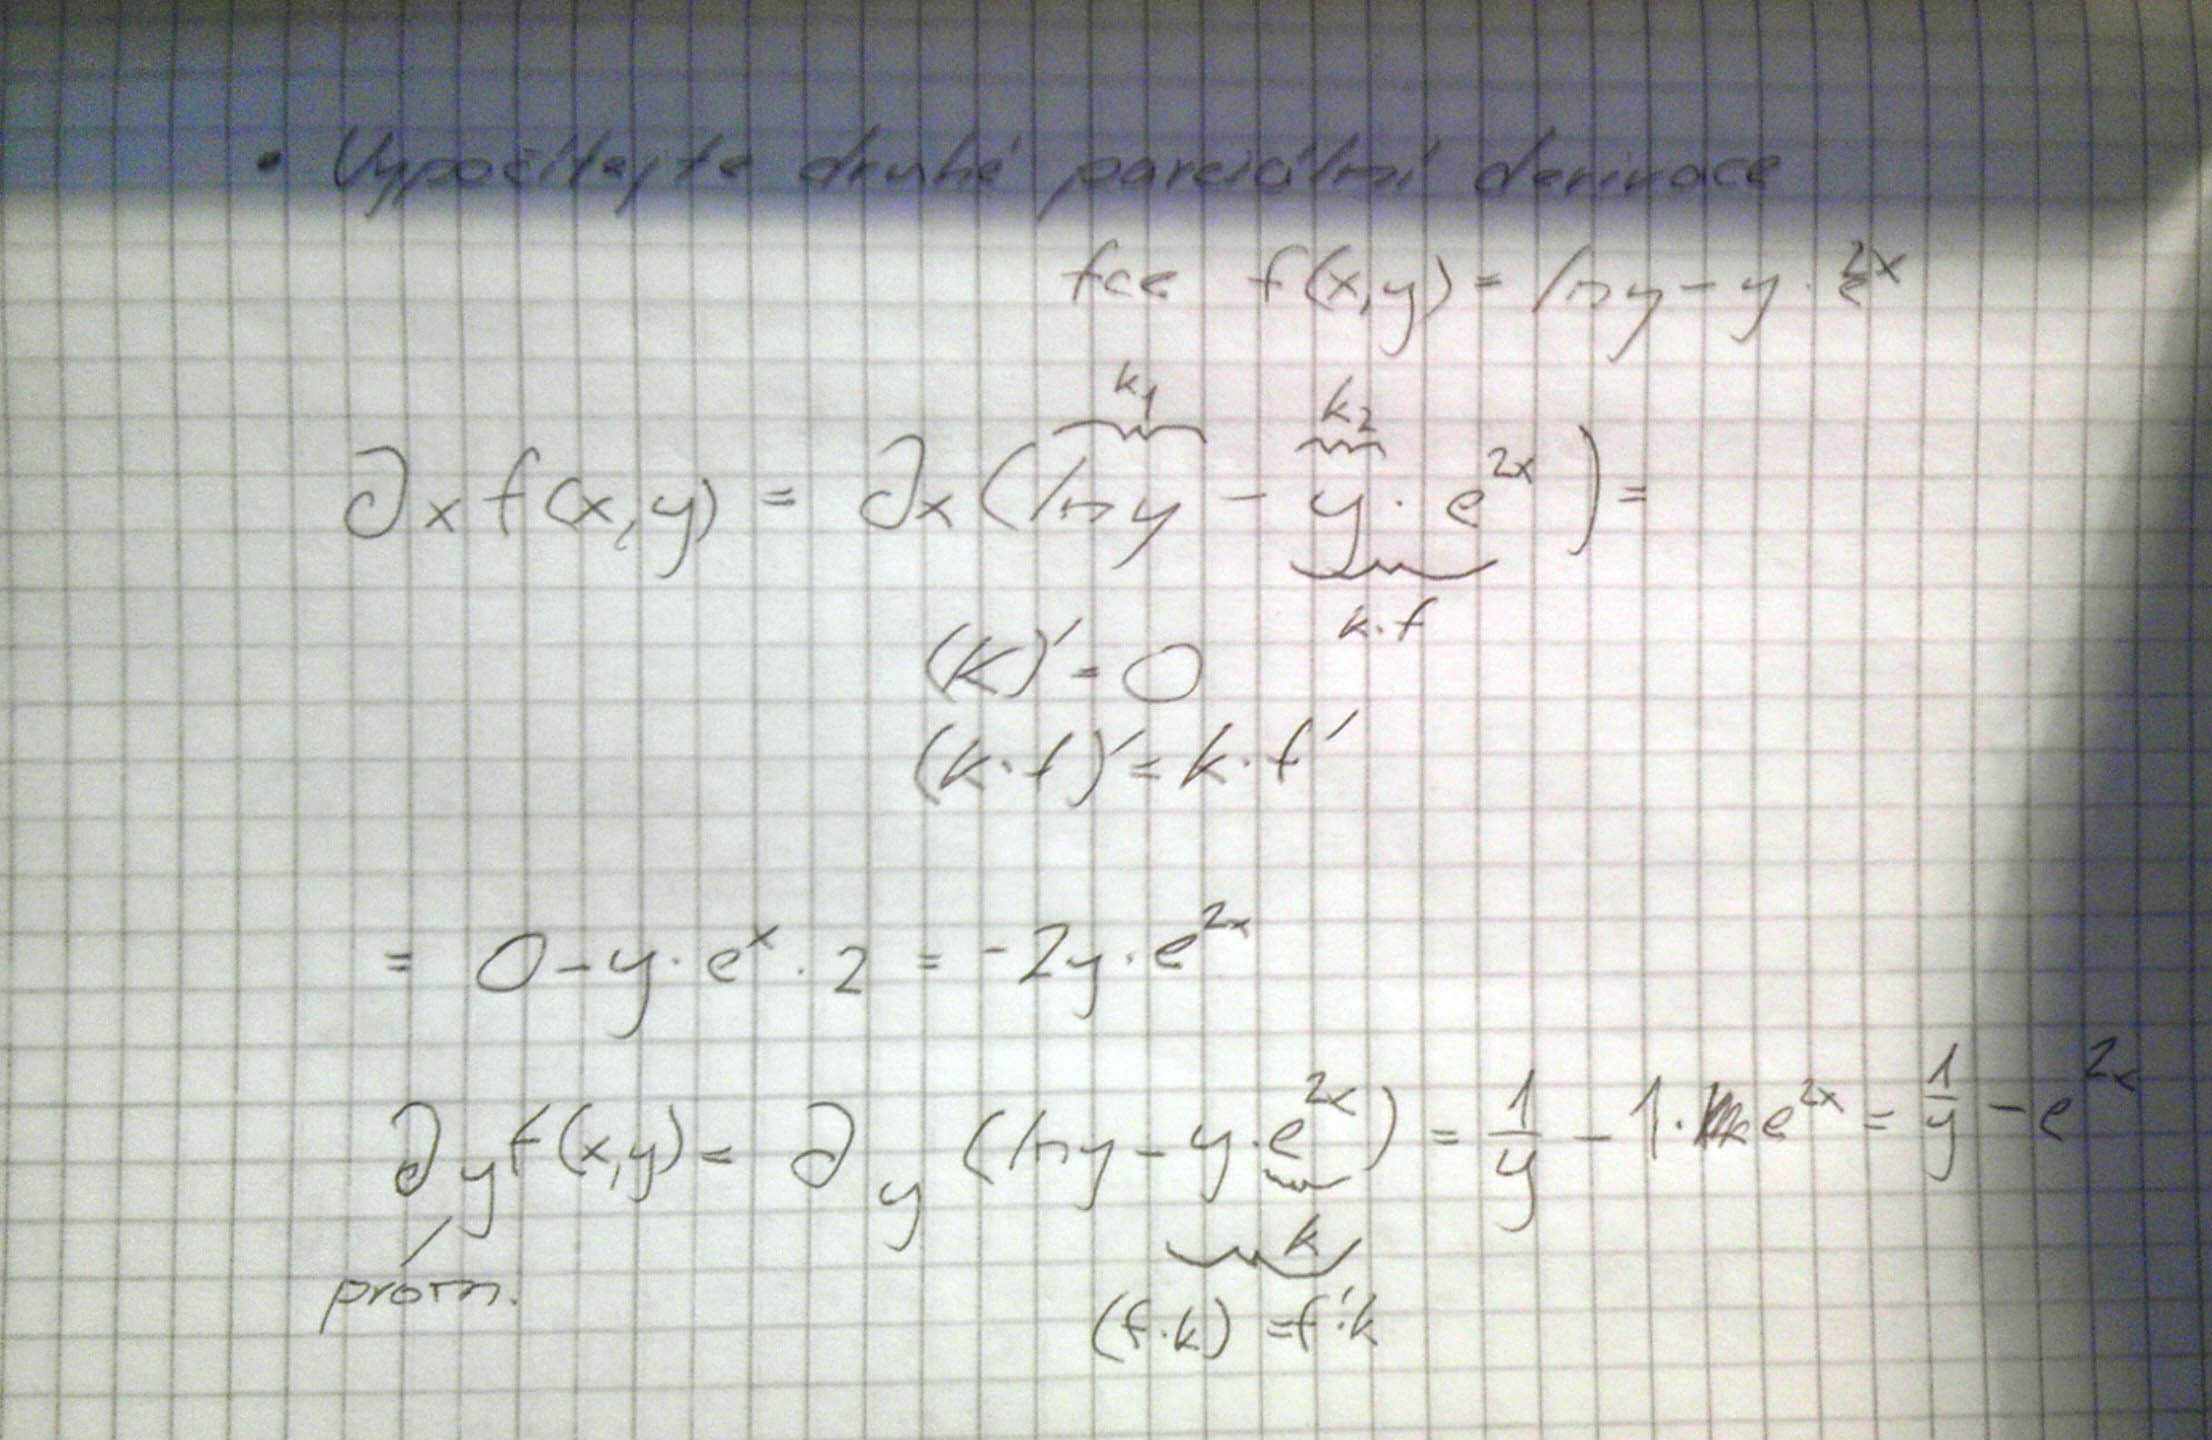 • Vypočítejte druhé parciální derivace
fce f(x,y) = ln y - y · e^2x
k₁ k₂
∂x f(x,y) = ∂x (ln y - y · e^2x) =
k·f
(k)' = 0
(k·f)' = k·f'
= 0 - y · e^x · 2 = -2y · e^2x
∂y f(x,y) = ∂y (ln y - y · e^2x) = 1/y - 1 · e^2x = 1/y - e^2x
k
prom.
(f·k) = f'·k